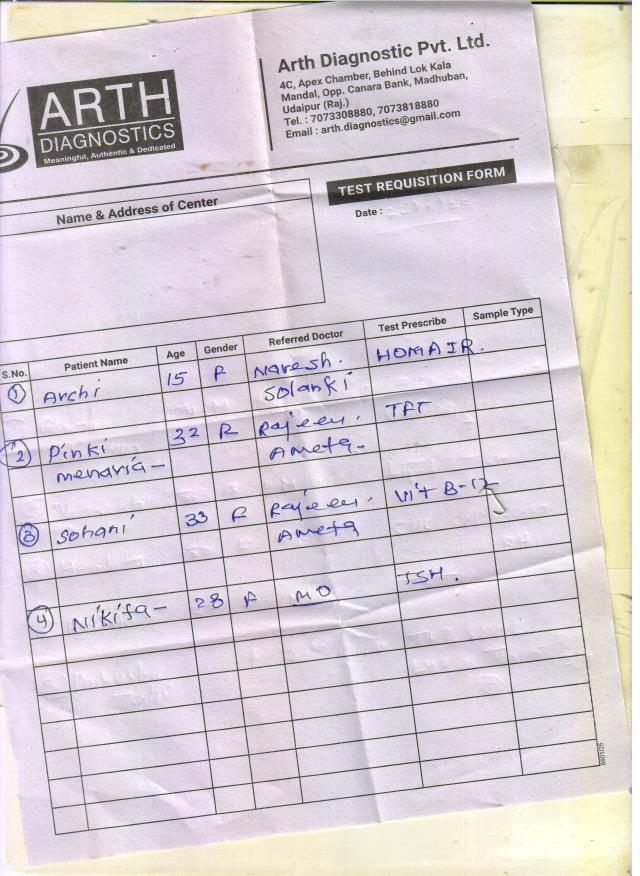 ARTH
DIAGNOSTICS
Meaningful, Authentic & Dedicated
Arth Diagnostic Pvt. Ltd.
4C, Apex Chamber, Behind Lok Kala
Mandal, Opp. Canara Bank, Madhuban,
Udaipur (Raj.)
Tel. : 7073308880, 7073818880
Email : arth.diagnostics@gmail.com
TEST REQUISITION FORM
Name & Address of Center
Date :
S.No. Patient Name Age Gender Referred Doctor Test Prescribe Sample Type
1 Archi 15 F Naresh. HOMAIR.
Solanki
2 Pinki 32 F Rajeev. TFT
menaria- Ameta-
3 Sohani 33 F Rajeev. Vit B-12
Ameta
4 Nikita- 28 F MO TSH.